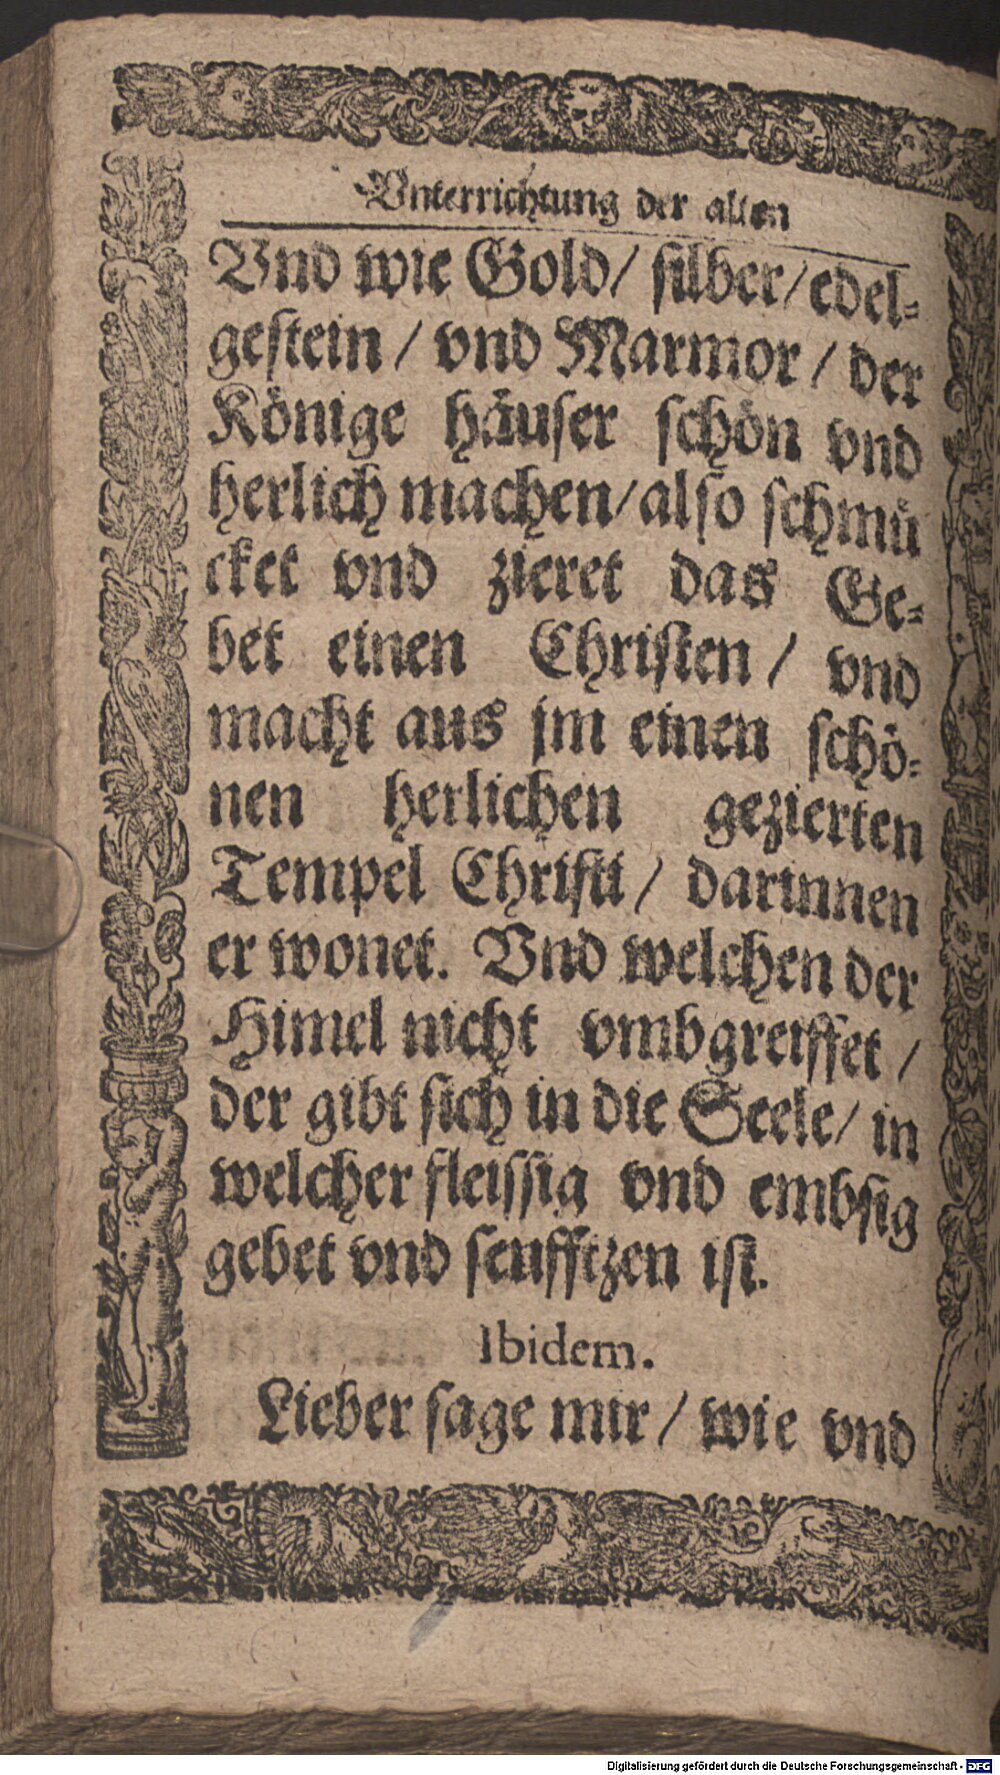 Vnterrichtung der alten
Vnd wie Gold/ silber/ edel-
gestein / vnd Marmor / der
Könige häuser schön vnd
herlich machen/ also schmü
cket vnd zieret das Ge-
bet einen Christen / vnd
macht aus jm einen schö-
nen herlichen gezierten
Tempel Christi / darinnen
er wonet. Vnd welchen der
Himel nicht vmbgreiffet /
der gibt sich in die Seele/ in
welcher fleissig vnd embsig
gebet vnd seufftzen ist.
Ibidem.
Lieber sage mir / wie vnd
Digitalisierung gefördert durch die Deutsche Forschungsgemeinschaft - DFG